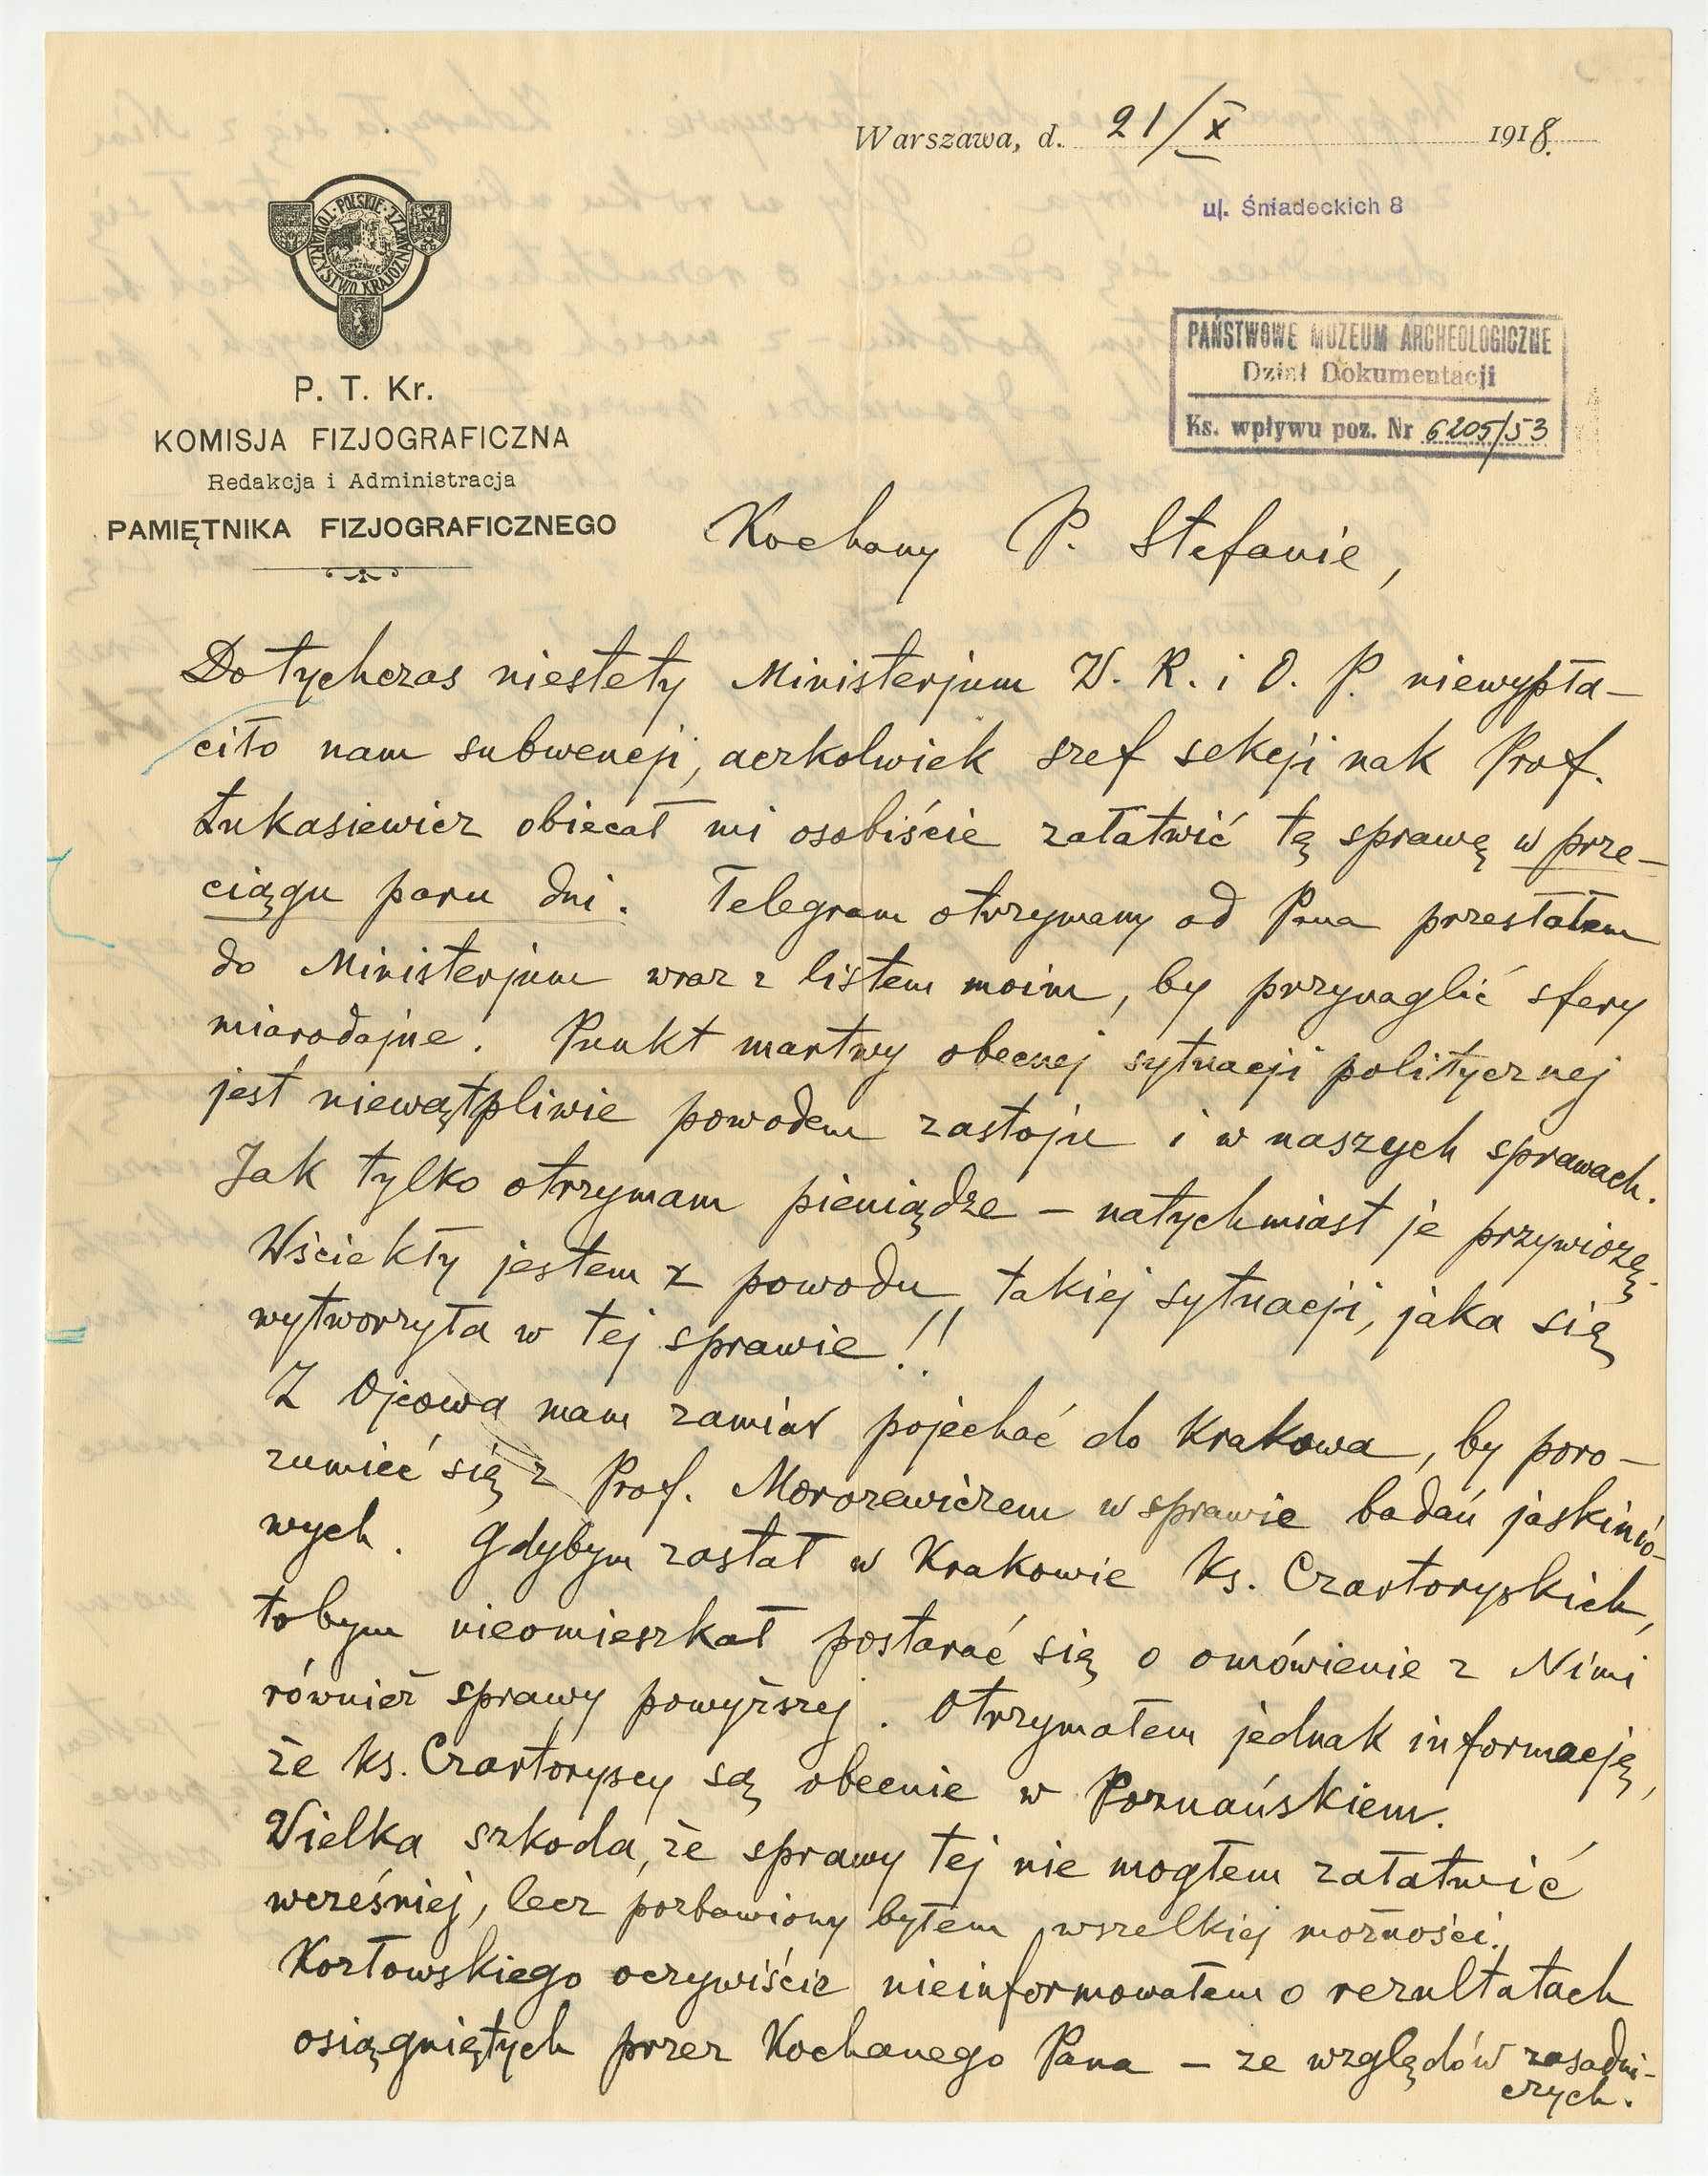 Warszawa, d. 21/X 1918.
ul. Śniadeckich 8
POLSKIE TOWARZYSTWO KRAJOZNAWCZE
PAŃSTWOWE MUZEUM ARCHEOLOGICZNE
Dział Dokumentacji
Ks. wpływu poz. Nr 6205/53
P. T. Kr.
KOMISJA FIZJOGRAFICZNA
Redakcja i Administracja
PAMIĘTNIKA FIZJOGRAFICZNEGO
Kochany P. Stefanie,
Dotychczas niestety Ministerjum W. R. i O. P. niewypła-
ciło nam subwencji, aczkolwiek szef sekcji nauk Prof.
Łukasiewicz obiecał mi osobiście załatwić tę sprawę w prze-
ciągu paru dni. Telegram otrzymany od Pana przesłałem
do Ministerjum wraz z listem moim, by przynaglić sfery
miarodajne. Punkt martwy obecnej sytuacji politycznej
jest niewątpliwie powodem zastoju i w naszych sprawach.
Jak tylko otrzymam pieniądze – natychmiast je przywiozę.
Wściekły jestem z powodu takiej sytuacji, jaka się
wytworzyła w tej sprawie!!
Z Ojcowa mam zamiar pojechać do Krakowa, by poro-
zumieć się z Prof. Morozewiczem w sprawie badań jaskinio-
wych. Gdybym zastał w Krakowie Ks. Czartoryskich,
tobym nieomieszkał postarać się o omówienie z Nimi
również sprawy powyższej. Otrzymałem jednak informację,
że ks. Czartoryscy są obecnie w Poznańskiem.
Wielka szkoda, że sprawy tej nie mogłem załatwić
wcześniej, lecz pozbawiony byłem wszelkiej możności.
Kozłowskiego oczywiście nieinformowałem o rezultatach
osiągniętych przez Kochanego Pana – ze względów zasadni-
czych.